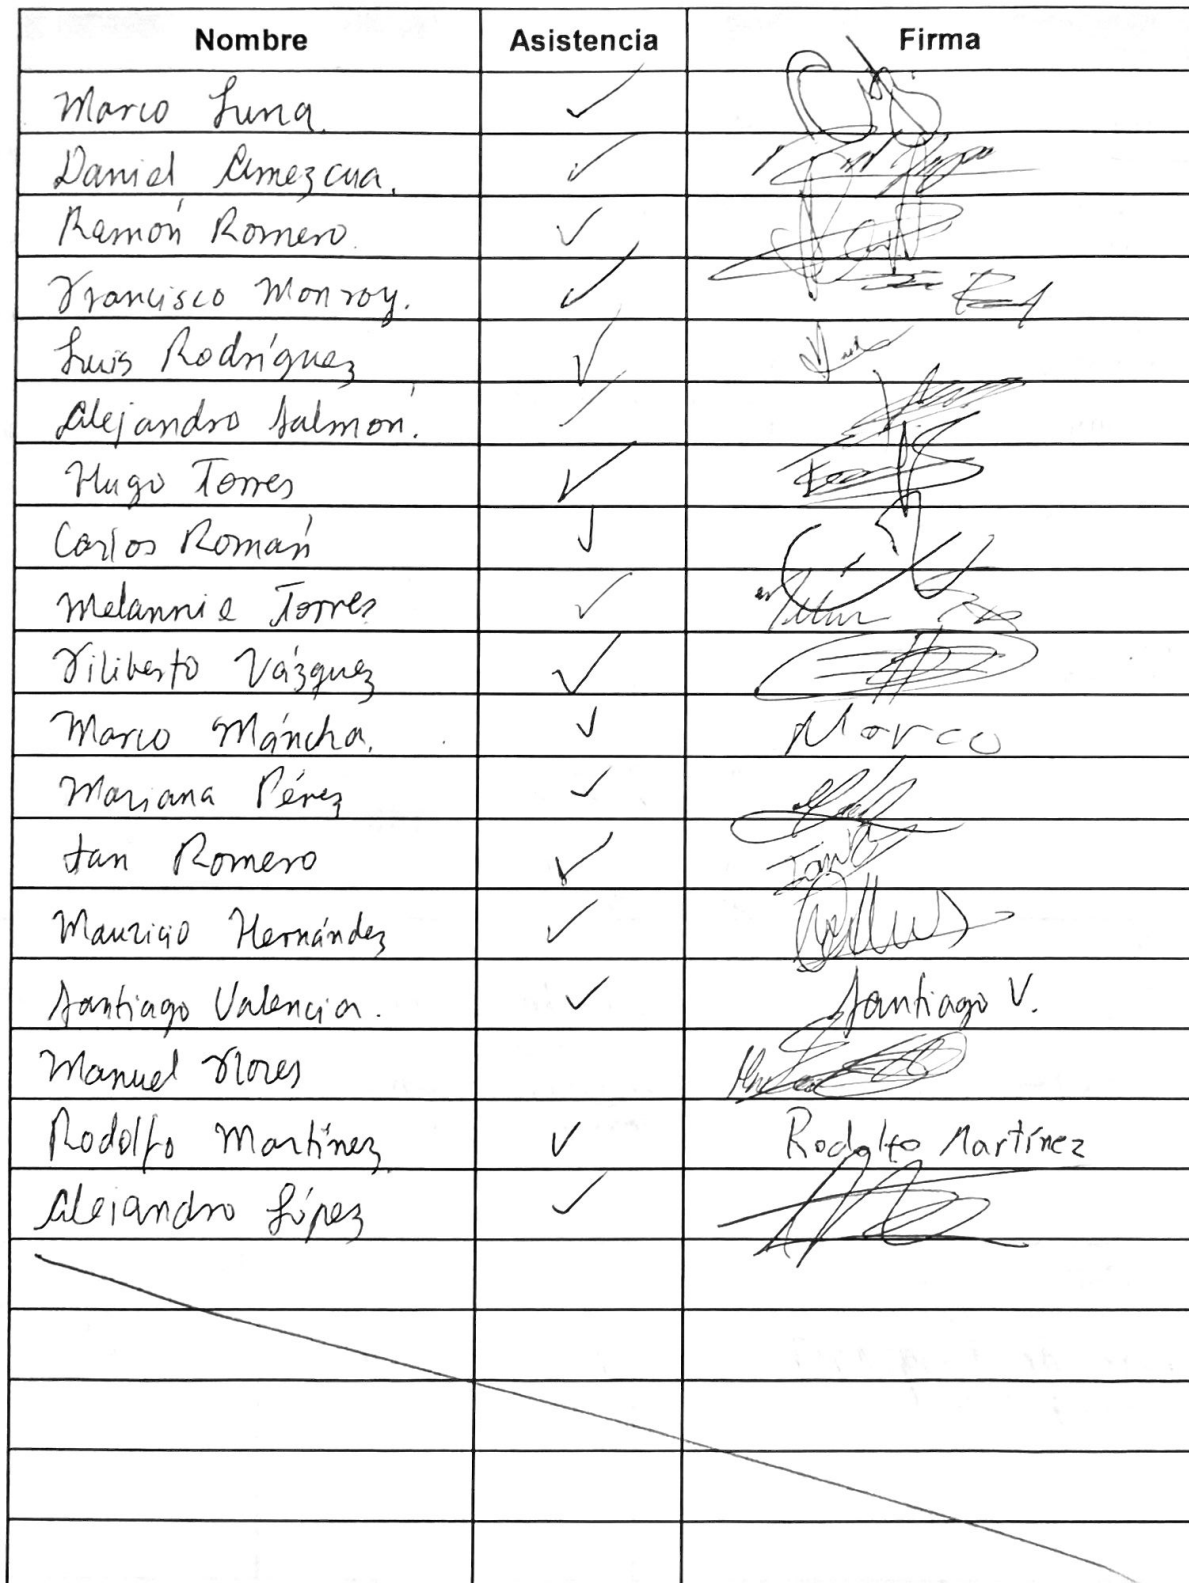 Nombre Asistencia Firma
Marco Luna. ✓
Daniel Amezcua. ✓
Ramón Romero. ✓
Francisco Monroy. ✓
Luis Rodríguez ✓ Luis
Alejandro Salmón. ✓
Hugo Torres ✓
Carlos Román ✓
Melannie Torres ✓
Filiberto Vázquez ✓
Marco Máncha. ✓ Marco
Mariana Pérez ✓
Ian Romero ✓
Mauricio Hernández ✓
Santiago Valencia. ✓ Santiago V.
Manuel Flores
Rodolfo Martínez ✓ Rodolfo Martínez
Alejandro López ✓